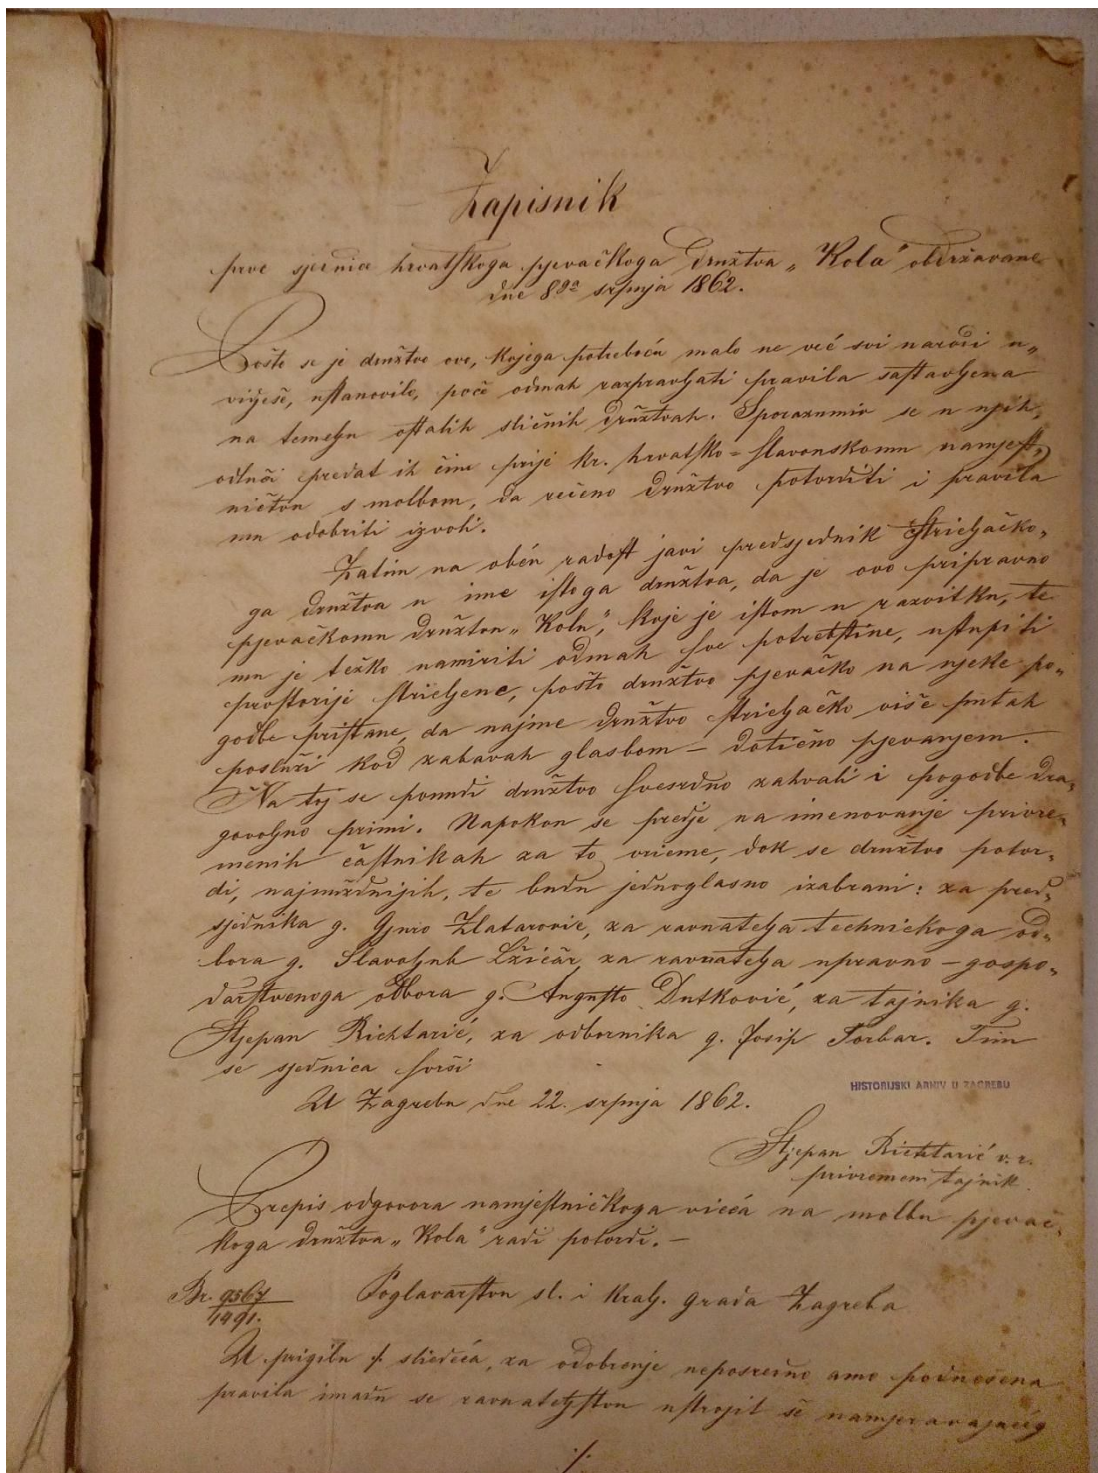 Zapisnik
prve sjednice hrvatskoga pjevačkoga družtva „Kola“ obdržavane
dne 8ga srpnja 1862.
Pošto se je družtvo ovo, kojega potreboću malo ne već svi narodi u„
vidješe, ustanovilo, poče odmah razpravljati pravila sastavljena
na temelju ostalih sličnih družtvah. Sporazumiv se u njih,
odluči predat ih čim prije kr. hrvatsko=slavonskomu namjest„
ničtvu s molbom, da rečeno družtvo potvrditi i pravila
mu odobriti izvoli.
Zatim na obću radost javi predsjednik strieljačko„
ga družtva u ime istoga družtva, da je ovo pripravno
pjevačkomu družtvu „Kolu“, koje je istom u razvitku, te
mu je težko namiriti odmah sve potrebštine, ustupiti
prostorije strieljene, pošto družtvo pjevačko na njeke po„
godbe pristane, da najme družtvo strieljačko više putah
posluži kod zabavah glasbom – dotično pjevanjem.
Na toj se ponudi družtvo svesrdno zahvali i pogodbe dra„
govoljno primi. Napokon se predje na imenovanje privre„
menih častnikah za to vrieme, dok se družtvo potvr„
di, najnuždnijih, te budu jednoglasno izabrani: za pred„
sjednika g. Gjuro Zlatarović, za ravnatelja techničkoga od„
bora g. Slavoljub Lžičar, za ravnatelja upravno–gospo„
darstvenoga odbora g. Augusto Dutković, za tajnika g.
Stjepan Richtarić, za odbornika g. Josip Torbar. Tim
se sjednica svrši
HISTORIJSKI ARHIV U ZAGREBU
U Zagrebu dne 22. srpnja 1862.
Stjepan Richtarić v. r.
privremeni tajnik.
Prepis odgovora namjestničkoga vieća na molbu pjevač„
koga družtva „Kola“ radi potvrdi. –
Br. 9567
1491.
Poglavarstvu sl. i kralj. grada Zagreba
U prigibu ·/. sliedeća, za odobrenje neposredno amo podnešena
pravila imadu se ravnateljstvu ustrojit se namjeravajućeg
·/.